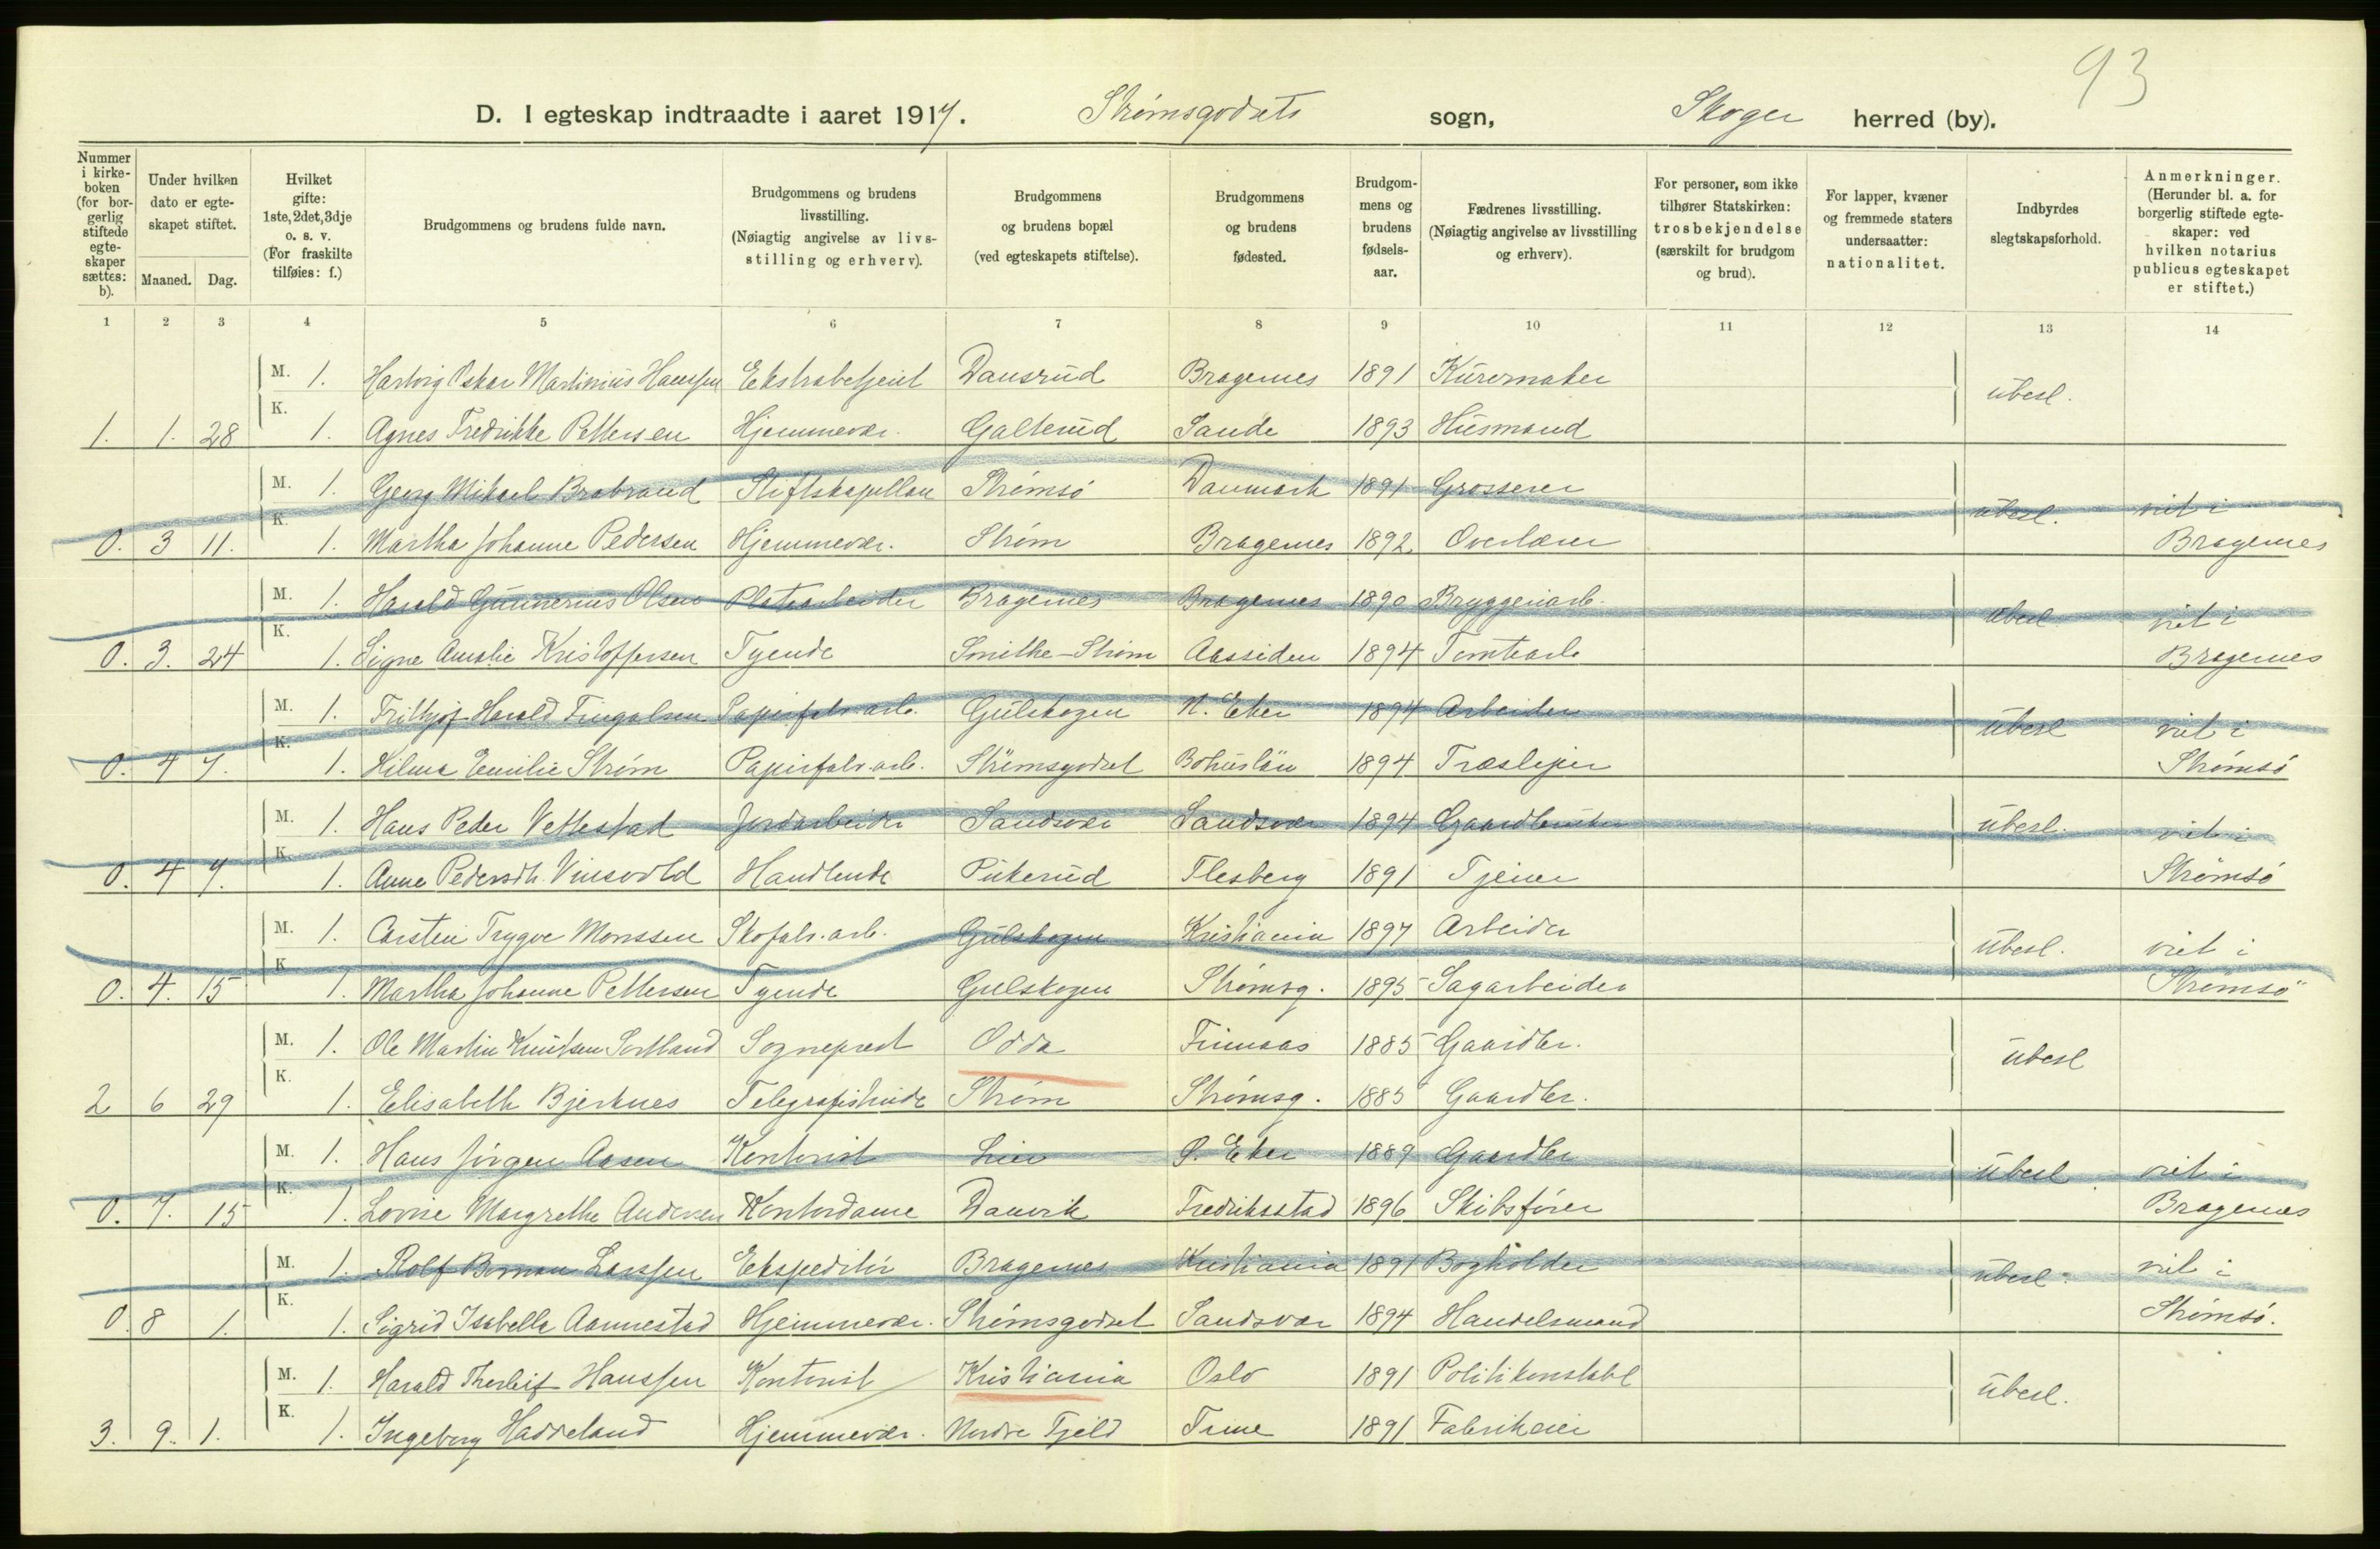 93
D. I egteskap indtraadte i aaret 1917. Strømsgodsets sogn, Skoger herred (by).
Nummer i kirkeboken (for borgerlig stiftede egteskaper sættes: b).
Under hvilken dato er egteskapet stiftet. Maaned. Dag.
Hvilket gifte: 1ste, 2det, 3dje o. s. v. (For fraskilte tilføies: f.)
Brudgommens og brudens fulde navn.
Brudgommens og brudens livsstilling. (Nøiagtig angivelse av livsstilling og erhverv).
Brudgommens og brudens bopæl (ved egteskapets stiftelse).
Brudgommens og brudens fødested.
Brudgommens og brudens fødselsaar.
Fædrenes livsstilling. (Nøiagtig angivelse av livsstilling og erhverv).
For personer, som ikke tilhører Statskirken: trosbekjendelse (særskilt for brudgom og brud).
For lapper, kvæner og fremmede staters undersaatter: nationalitet.
Indbyrdes slegtskapsforhold.
Anmerkninger. (Herunder bl. a. for borgerlig stiftede egteskaper: ved hvilken notarius publicus egteskapet er stiftet.)
1 2 3 4 5 6 7 8 9 10 11 12 13 14
M. 1. Hartvig Oskar Martinius Hanssen Ekstrabetjent Dansrud Bragernes 1891 Kurvmaker ubesl.
1. 1. 28 K. 1. Agnes Fredrikke Pettersen Hjemmevær. Galterud Sande 1893 Husmand
M. 1. Georg Mikael Brabrand Stiftskapellan Strømsø Danmark 1891 Grosserer ubesl. viet i
0. 3 11. K. 1. Martha Johanne Pedersen Hjemmevær. Strøm Bragernes 1892 Overlærer Bragernes
M. 1. Harald Gunnerius Olsen Platearbeider Bragernes Bragernes 1890 Bryggeriarb. ubesl. viet i
0. 3. 24 K. 1. Signe Amalie Kristoffersen Tyende Smithe-Strøm Aassiden 1894 Tomtearb Bragernes
M. 1. Frithjof Harald Fingalsen Papirfabr.arb. Gulskogen N. Eker 1894 Arbeider ubesl viet i
0. 4 7. K. 1. Hilma Emilie Strøm Papirfabr.arb. Strømsgodset Bohuslän 1894 Træsliper Strømsø
M. 1. Hans Peder Vettestad Jordarbeider Sandsvær Sandsvær 1894 Gaardbruker ubesl. viet i
0. 4 7. K. 1. Anne Pedersdtr. Vinsvold Handlende Pukerud Flesberg 1891 Tjener Strømsø
M. 1. Carsten Trygve Monssen Skofabr.arb. Gulskogen Kristiania 1897 Arbeider ubesl. viet i
0. 4. 15 K. 1. Martha Johanne Pettersen Tyende Gulskogen Strømsg. 1895 Sagarbeider Strømsø
M. 1. Ole Martin Knutsen Sortland Sogneprest Odda Finnaas 1885 Gaardbr. ubesl
2 6 29 K. 1. Elisabeth Bjerknes Telegrafistinde Strøm Strømsg. 1885 Gaardbr.
M. 1. Hans Jørgen Aasen Kontorist Lier Ø. Eker 1889 Gaardbr ubesl viet i
0. 7. 15 K. 1. Lovise Margrethe Andersen Kontordame Danvik Fredriksstad 1896 Skibsfører Bragernes
M. 1. Rolf Larssen Ekspeditør Bragernes Kristiania 1891 Bogholder ubesl. viet i
0. 8 1. K. 1. Sigrid Isabella Aannestad Hjemmevær. Strømsgodset Sandsvær 1894 Handelsmand Strømsø.
M. 1. Harald Thorleif Hanssen Kontorist Kristiania Oslo 1891 Politikonstabel ubesl.
3. 9. 1. K. 1. Ingeborg Haddeland Hjemmevær. Nordre Fjeld Time 1891 Fabrikeier